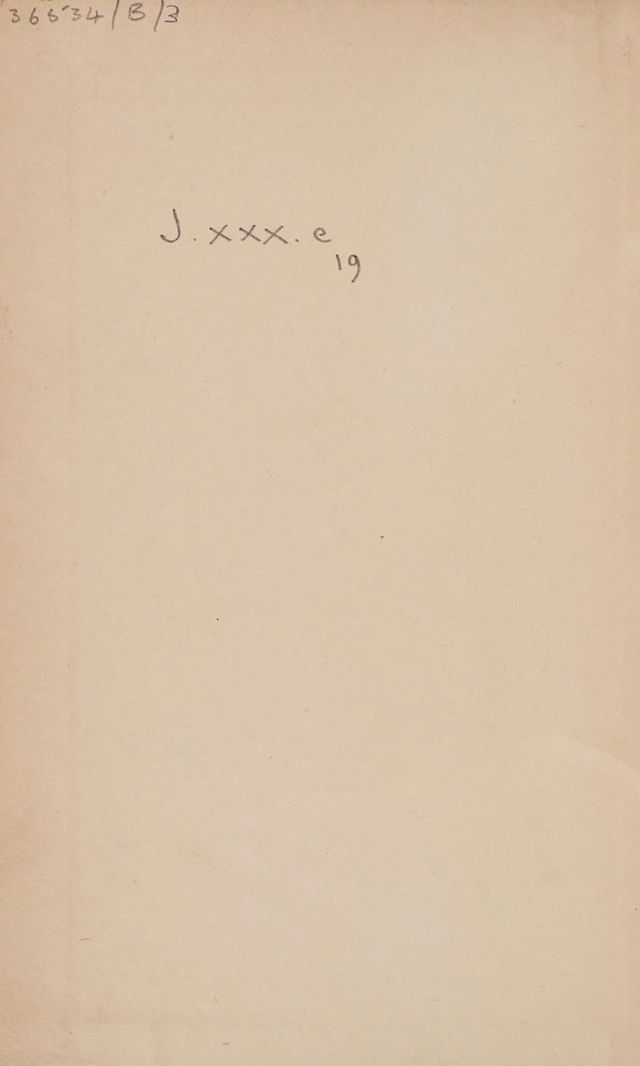 36534/B/3
J. xxx. e
19